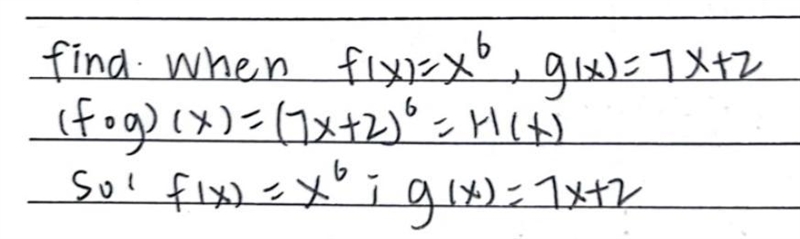 find. when f(x)=x⁶, g(x)=7x+2
(fog)(x)=(7x+2)⁶=H(x)
So: f(x)=x⁶; g(x)=7x+2